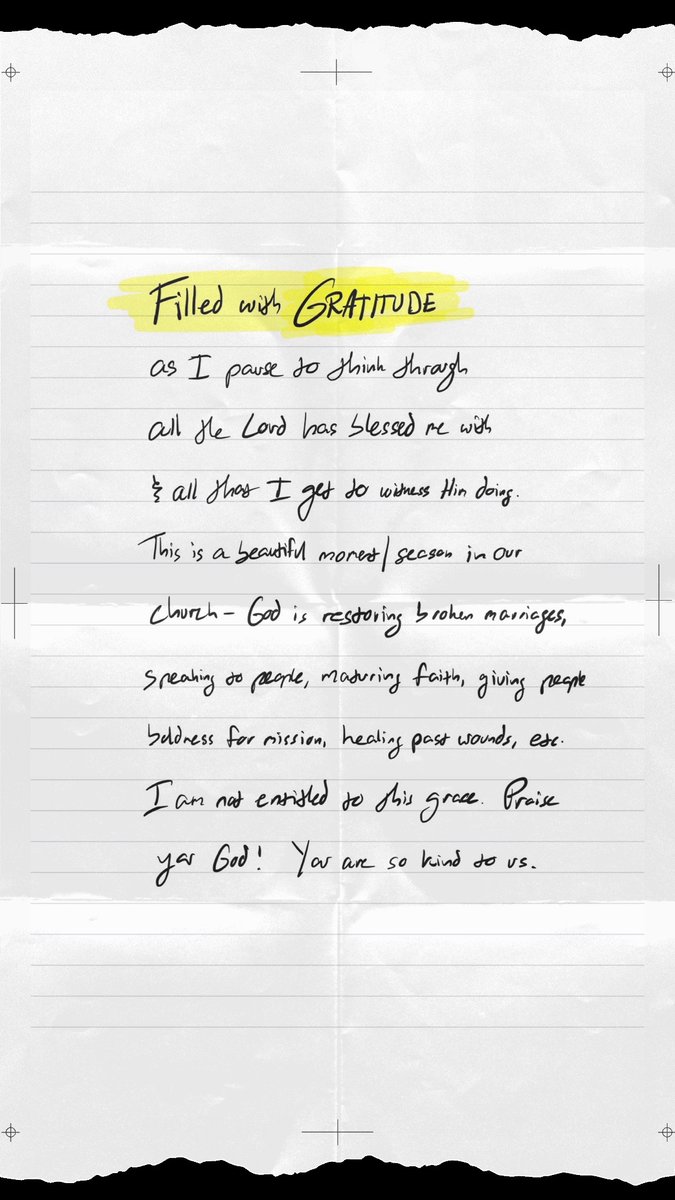 Filled with GRATITUDE
as I pause to think through
all the Lord has blessed me with
& all that I get to witness Him doing.
This is a beautiful moment/season in our
church - God is restoring broken marriages,
speaking to people, maturing faith, giving people
boldness for mission, healing past wounds, etc.
I am not entitled to this grace. Praise
you God! You are so kind to us.